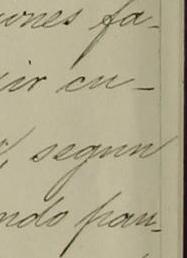 iones fa-
ir cu-
segun
ndo fran-